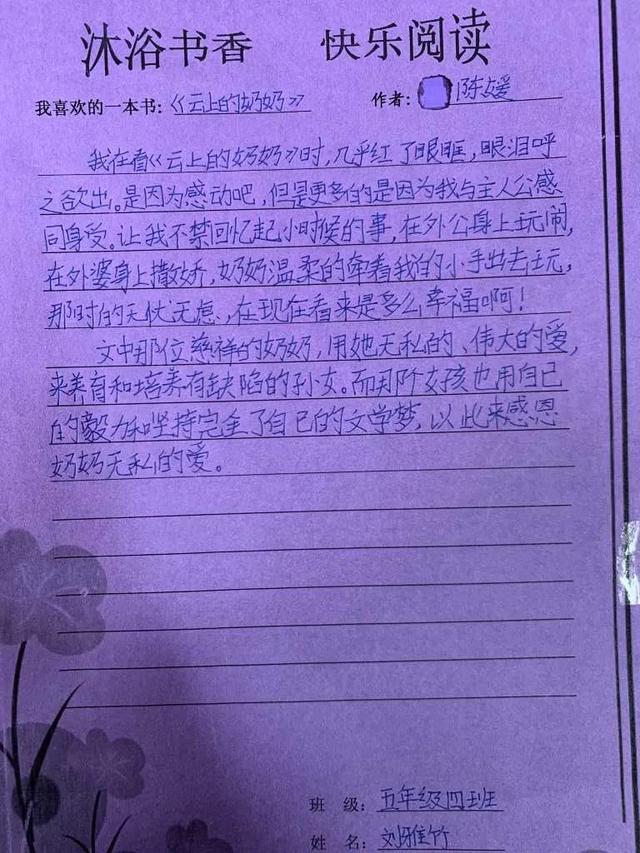 沐浴书香 快乐阅读
我喜欢的一本书:《云上的奶奶》 作者: 陈媛
我在看《云上的奶奶》时,几乎红了眼眶,眼泪呼
之欲出。是因为感动吧,但是更多的是因为我与主人公感
同身受。让我不禁回忆起小时候的事,在外公身上玩闹,
在外婆身上撒娇,奶奶温柔的牵着我的小手出去玩,
那时的天仗无虑,在现在看来是多么幸福啊!
文中那位慈祥的奶奶,用她无私的、伟大的爱,
来养育和培养有缺陷的孙女。而那个女孩也用自己
的毅力和坚持完全了自己的文学梦,以此来感恩
奶奶无私的爱。
班 级: 五年级四班
姓 名: 刘雅竹